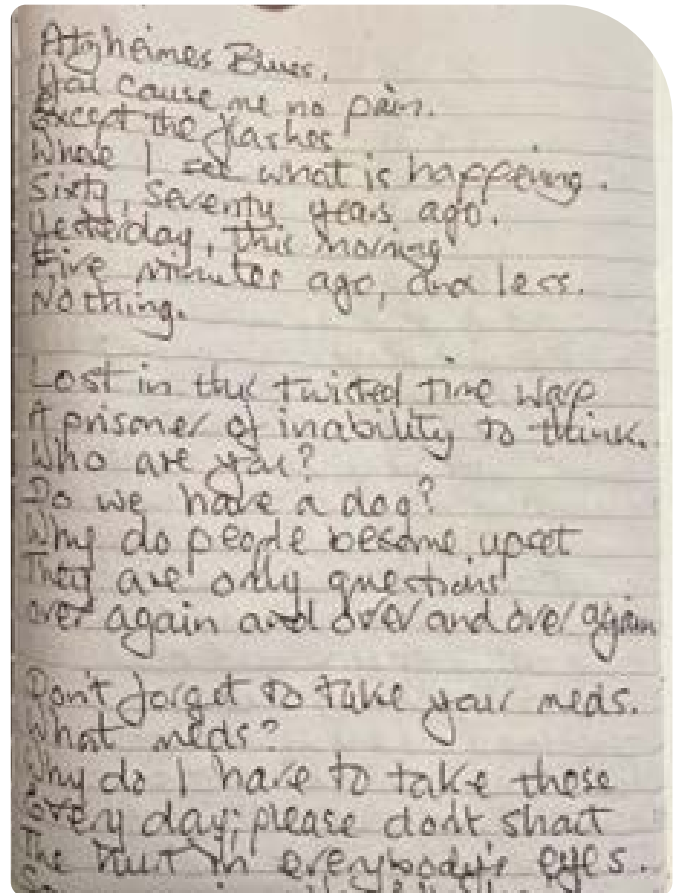 Alzheimes Blues.
You cause me no pain.
Except the flashes
Where I see what is happening.
Sixty, seventy years ago.
Yesterday, this morning
Five minutes ago, and less.
Nothing.
Lost in this twisted time warp
A prisoner of inability to think.
Who are you?
Do we have a dog?
Why do people become upset
They are only questions
over again and over and over again
Don't forget to take your meds.
What meds?
Why do I have to take these
every day; please don't shout
The hurt in everybody's eyes.